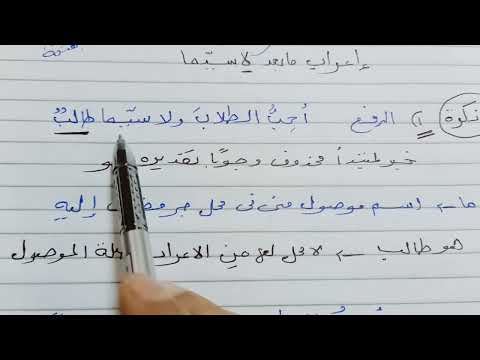 إعراب ما بعد لاسيّما
نكرة ١) الرفع أُحِبُّ الطلابَ ولا سيّما طالبٌ
خبر لمبتدأ محذوف وجوبًا تقديره هو
ما ← اسم موصول مبني في محل جر مضاف إليه
هو طالب ← لا محل لها من الاعراب صلة الموصول